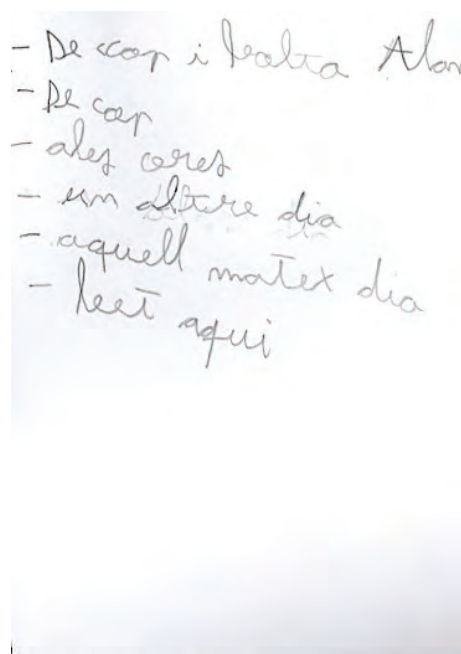 - De cop i balta Alan
- De cop
- ales ores
- un altre dia
- aquell matex dia
- leet aqui